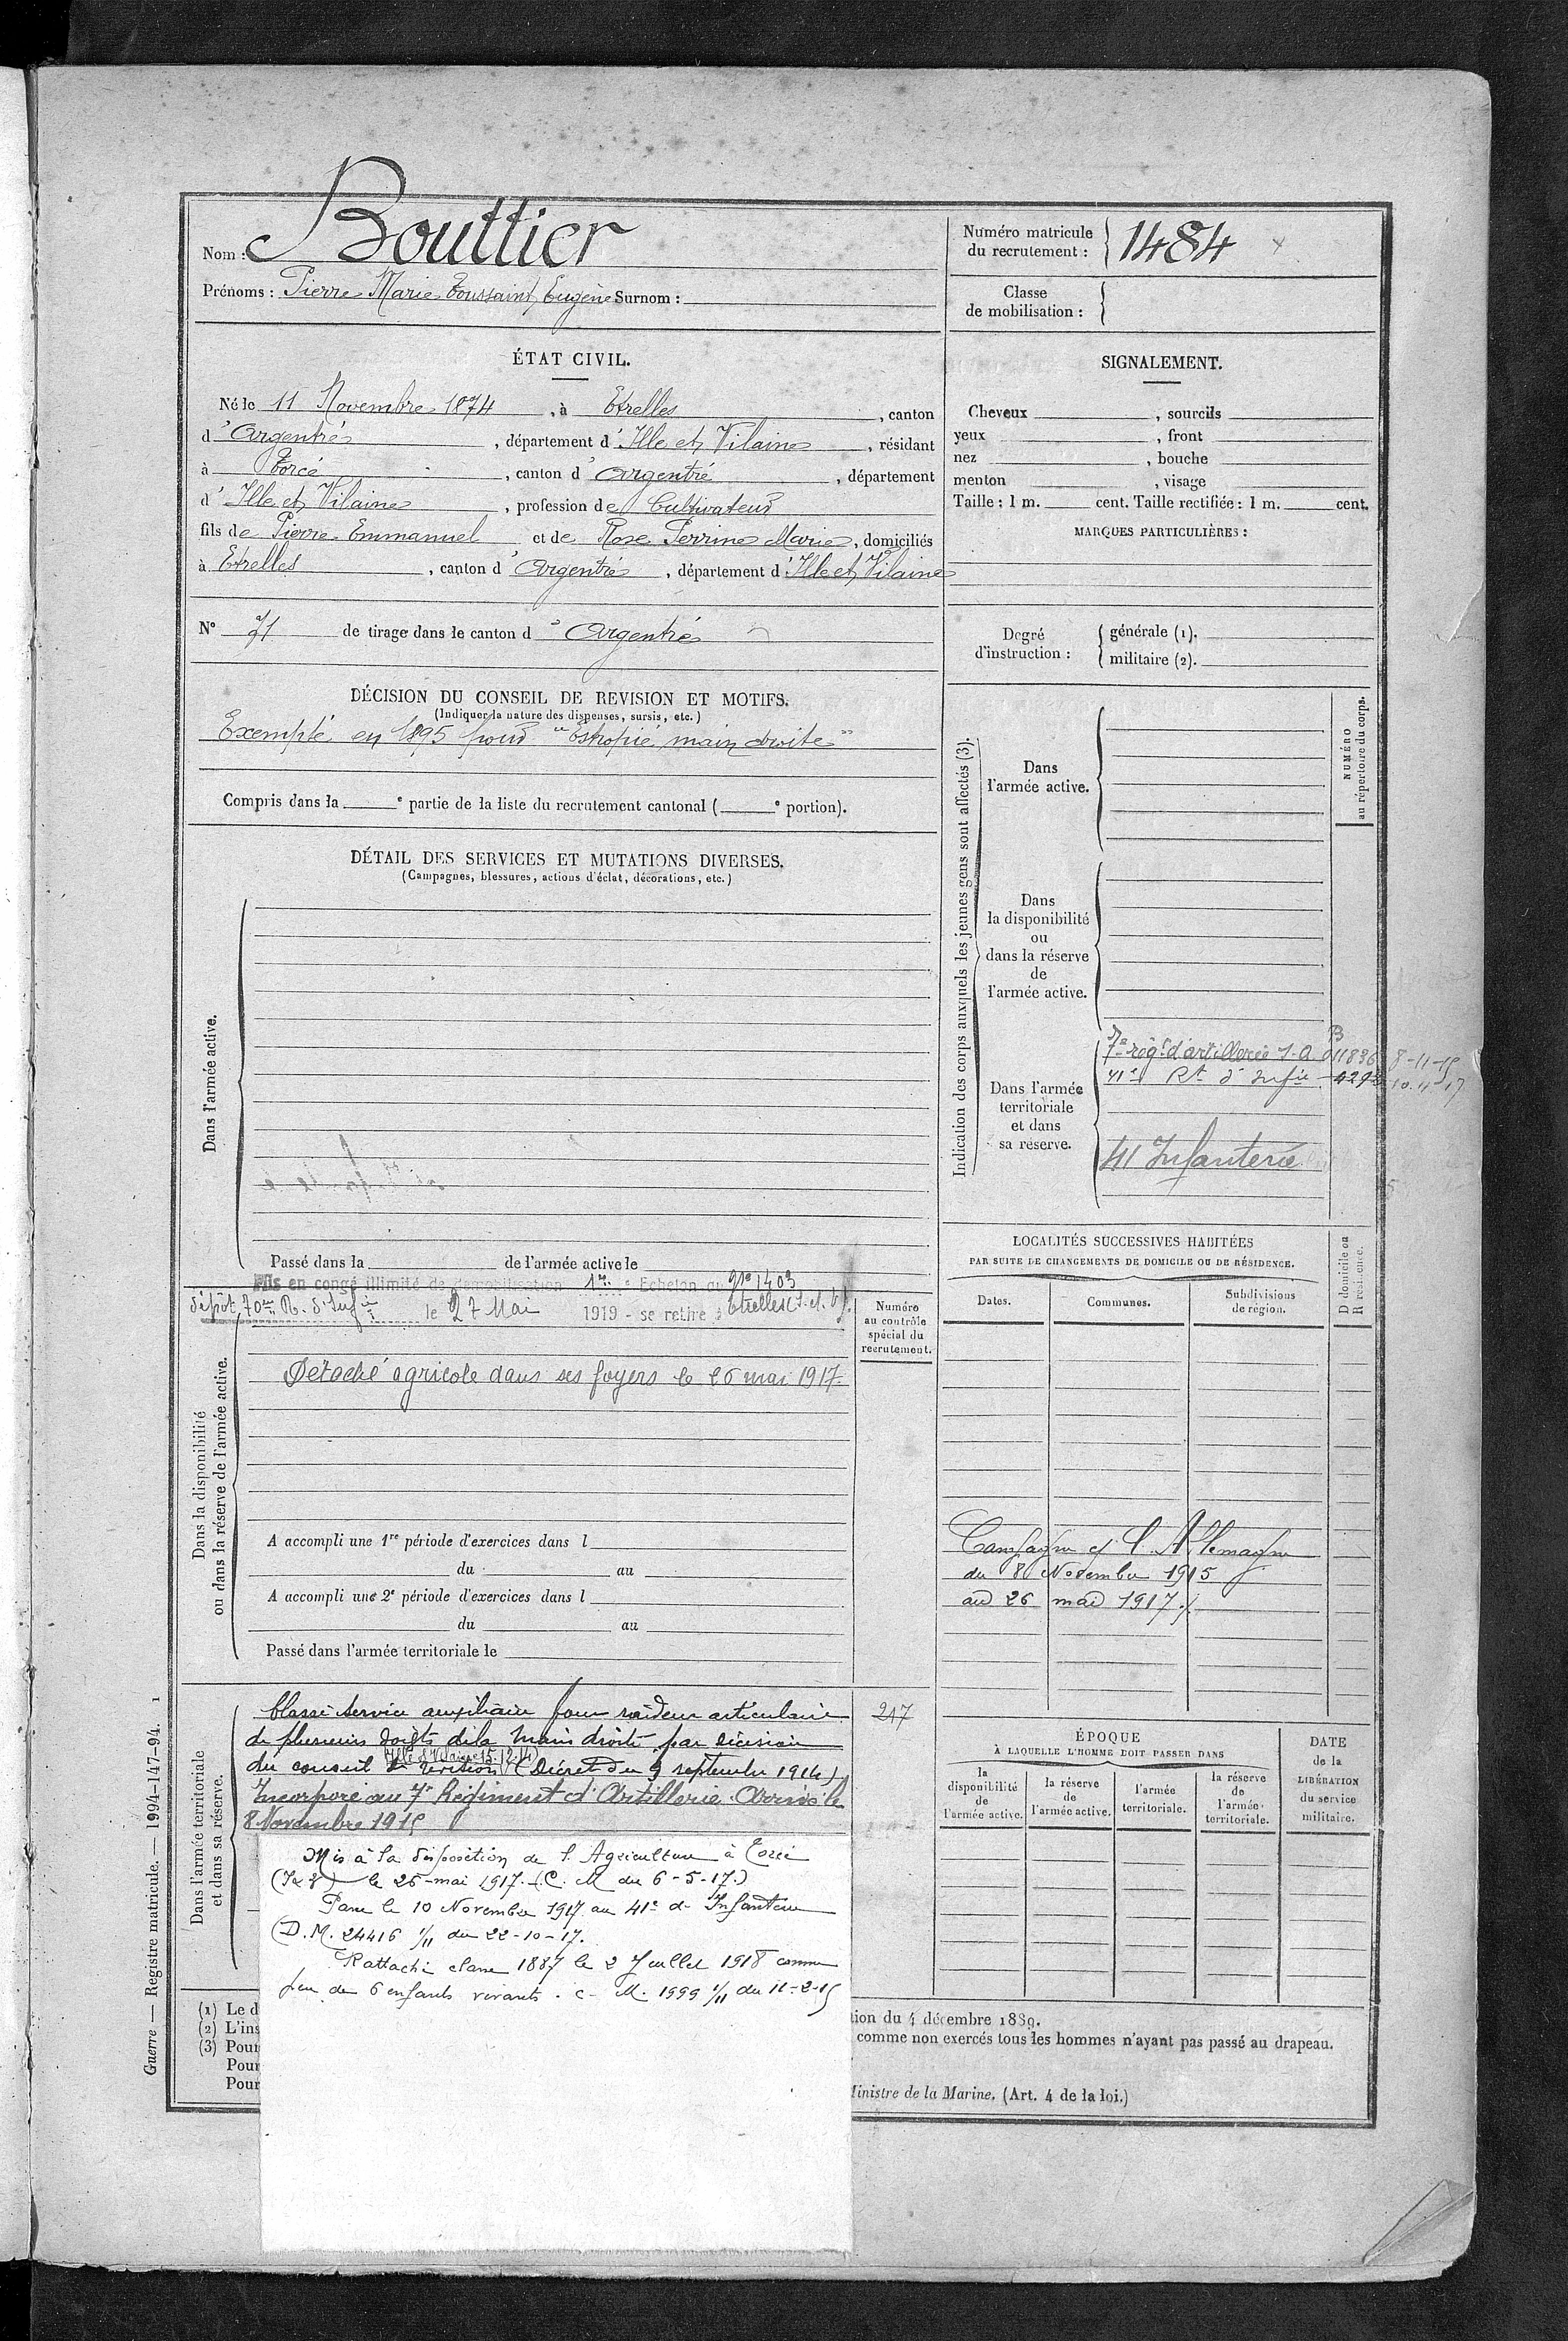 Nom : Bouttier
Prénoms : Pierre Marie Toussaint Eugène Surnom :
ÉTAT CIVIL.
Né le 11 Novembre 1874, à Etrelles, canton
d'Argentré, département d'Ille et Vilaine, résidant
à Torcé, canton d'Argentré, département
d'Ille et Vilaine, profession de Cultivateur
fils de Pierre Emmanuel et de Rose Perrine Marie, domiciliés
à Etrelles, canton d'Argentré, département d'Ille et Vilaine
N° 71 de tirage dans le canton d'Argentré
DÉCISION DU CONSEIL DE REVISION ET MOTIFS.
(Indiquer la nature des dispenses, sursis, etc.)
Exempté en 1895 pour "Estropié main droite"
Compris dans la e partie de la liste du recrutement cantonal ( e portion).
DÉTAIL DES SERVICES ET MUTATIONS DIVERSES.
(Campagnes, blessures, actions d'éclat, décorations, etc.)
Dans l'armée active.
Passé dans la de l'armée active le
Mis en congé illimité de démobilisation 1er Echelon au 91e 1403
dépôt 70me R. d'Infie le 27 Mai 1919 - se retire à Etrelles (I.et.V).
Numéro
au contrôle
spécial du
recrutement.
Dans la disponibilité
ou dans la réserve de l'armée active.
Détaché agricole dans ses foyers le 26 mai 1917
A accompli une 1re période d'exercices dans l
du au
A accompli une 2e période d'exercices dans l
du au
Passé dans l'armée territoriale le
Dans l'armée territoriale
et dans sa réserve.
Classé service auxiliaire pour raideur articulaire
de plusieurs doigts de la main droite par décision
(Ille & Vilaine 15.12.14)
du conseil de révision (Décret du 9 septembre 1914)
217
Incorporé au 7e Régiment d'Artillerie. Arrivé le
8 Novembre 1915
Mis à la disposition de l'Agriculture à Torcé
(I & V) le 26 mai 1917. (C. M du 6-5-17.)
Passe le 10 Novembre 1917 au 41e d'Infanterie
(D.M. 24416 1/11 du 22-10-17.
Rattaché classe 1887 le 2 Juillet 1918 comme
père de 6 enfants vivants. C. M. 1999 1/11 du 11-2-15
(1) Le d
(2) L'ins
(3) Pour
Pour
Pour
Guerre — Registre matricule. — 1994-147-94. 1
Numéro matricule
du recrutement : 1484
Classe
de mobilisation :
SIGNALEMENT.
Cheveux , sourcils
yeux , front
nez , bouche
menton , visage
Taille : 1 m. cent. Taille rectifiée : 1 m. cent.
MARQUES PARTICULIÈRES :
Degré
d'instruction :
générale (1).
militaire (2).
Indication des corps auxquels les jeunes gens sont affectés (3).
NUMÉRO
au répertoire du corps.
Dans
l'armée active.
Dans
la disponibilité
ou
dans la réserve
de
l'armée active.
Dans l'armée
territoriale
et dans
sa réserve.
7e régt d'artillerie S.A 011836 8-11-15
41e Rt d'Infie 4292 10.11.17
41 Infanterie
LOCALITÉS SUCCESSIVES HABITÉES
PAR SUITE DE CHANGEMENTS DE DOMICILE OU DE RÉSIDENCE.
Dates. Communes. Subdivisions
de région.
D domicile ou
R résidence.
Campagne c/ l'Allemagne
du 8 Novembre 1915
au 26 mai 1917
ÉPOQUE
À LAQUELLE L'HOMME DOIT PASSER DANS
la
disponibilité
de
l'armée active.
la réserve
de
l'armée active.
l'armée
territoriale.
la réserve
de
l'armée
territoriale.
DATE
de la
LIBÉRATION
du service
militaire.
tion du 4 décembre 1889.
comme non exercés tous les hommes n'ayant pas passé au drapeau.
Ministre de la Marine. (Art. 4 de la loi.)